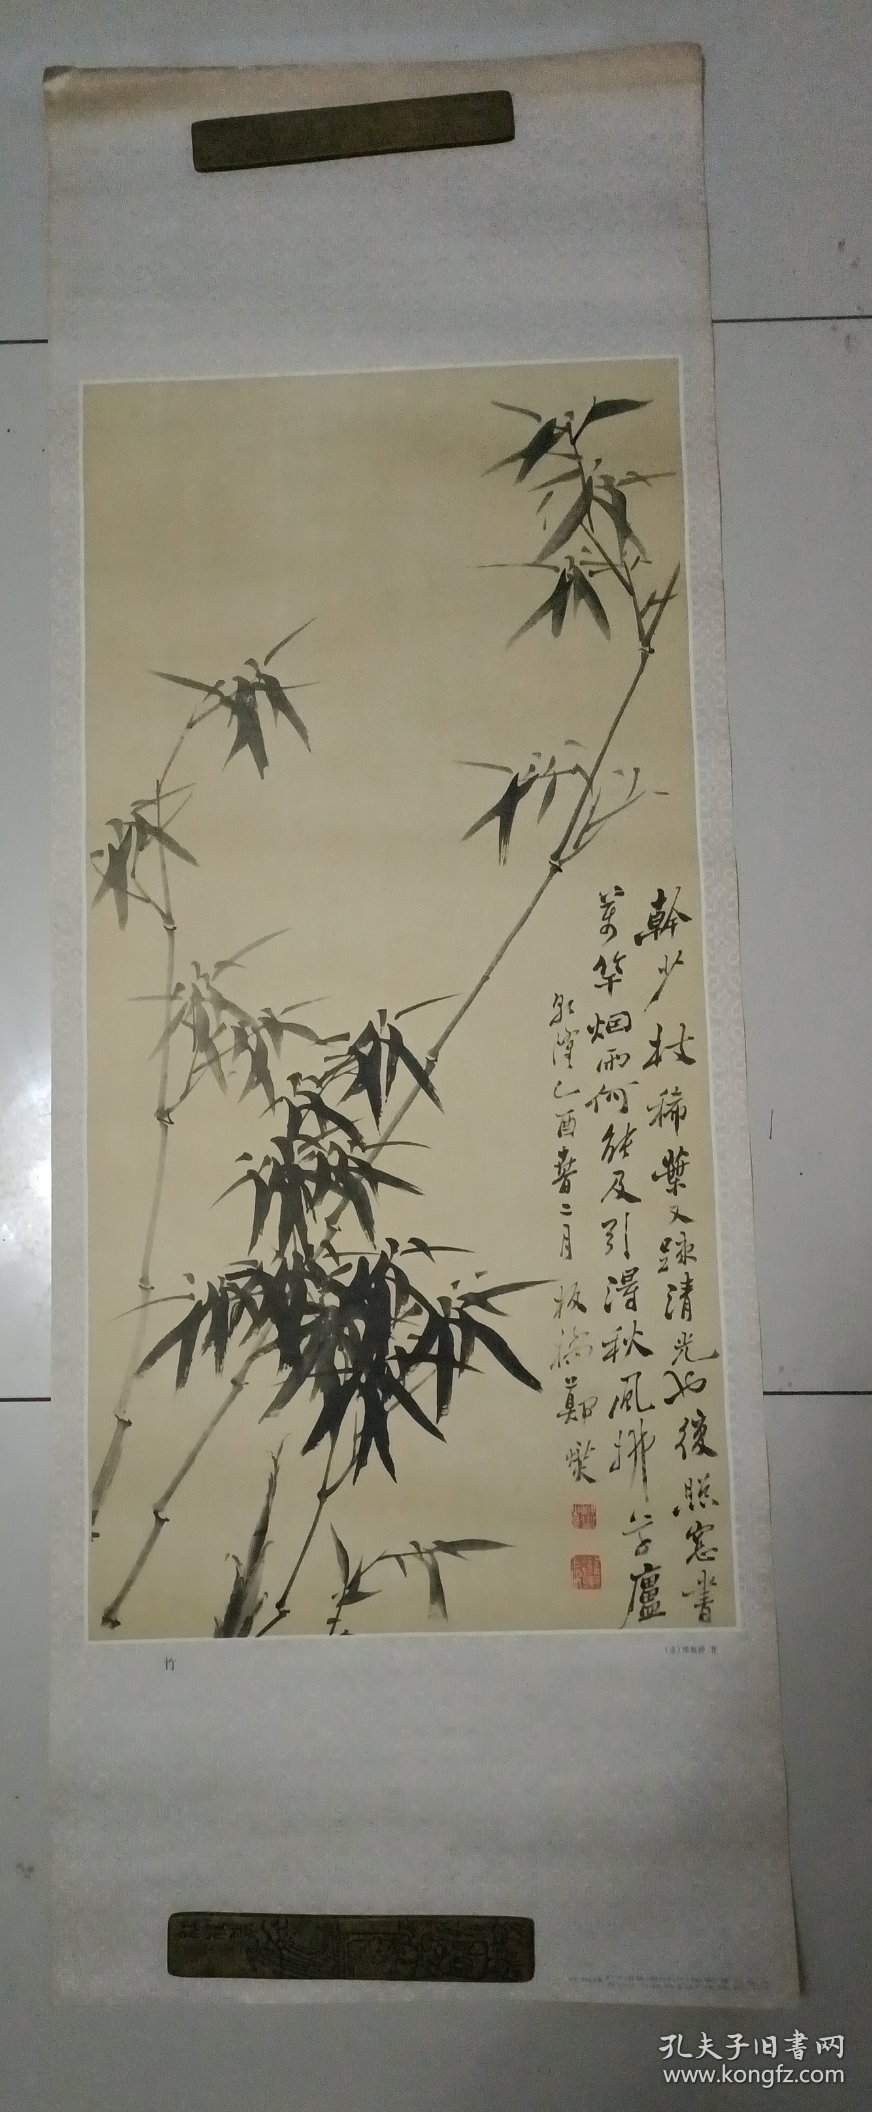 幹少枝稀葉又疎清光也復照窓書
萬竿烟雨何能及引得秋風拂草廬
乾隆乙酉春二月板橋鄭燮
竹
(清)郑板桥 作
孔夫子旧書网
www.kongfz.com